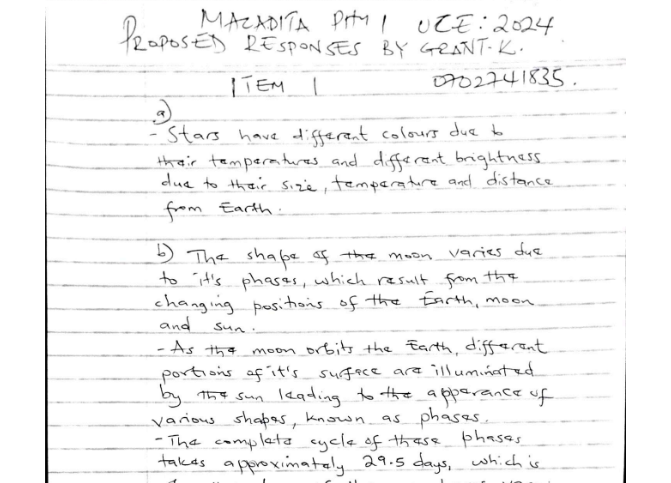 MAZADITA PHY 1 UCE: 2024
PROPOSED RESPONSES BY GRANT. K.
ITEM 1 0702741835.
a)
- Stars have different colours due to
their temperatures and different brightness
due to their size, temperature and distance
from Earth.
b) The shape of the moon varies due
to it's phases, which result from the
changing positions of the Earth, moon
and sun.
- As the moon orbits the Earth, different
portions of it's surface are illuminated
by the sun leading to the apperance of
various shapes, known as phases.
- The complete cycle of these phases
takes approximately 29.5 days, which is